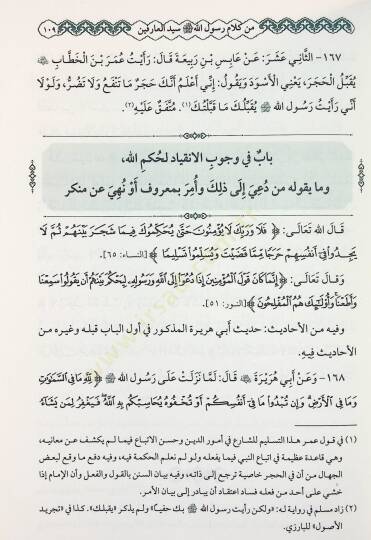 من كلام رسول الله ﷺ سيد العارفين ١٠٩
١٦٧- الثَّانِي عَشَرَ: عَنْ عَابِسِ بْنِ رَبِيعَةَ قَالَ: رَأَيْتُ عُمَرَ بْنَ الْخَطَّابِ ﷺ
يُقَبِّلُ الْحَجَرَ، يَعْنِي الْأَسْوَدَ وَيَقُولُ: إِنِّي أَعْلَمُ أَنَّكَ حَجَرٌ مَا تَنْفَعُ وَلَا تَضُرُّ، وَلَوْلَا
أَنِّي رَأَيْتُ رَسُولَ اللهِ ﷺ يُقَبِّلُكَ مَا قَبَّلْتُكَ(١). مُتَّفَقٌ عَلَيْهِ(٢).
بابٌ في وجوبِ الانقيادِ لحُكمِ الله،
وما يقوله من دُعِيَ إِلَى ذلِكَ وأُمِرَ بمعروف أَوْ نُهِيَ عن منكر
قَالَ اللهُ تَعَالَى: ﴿فَلَا وَرَبِّكَ لَا يُؤْمِنُونَ حَتَّىٰ يُحَكِّمُوكَ فِيمَا شَجَرَ بَيْنَهُمْ ثُمَّ لَا
يَجِدُوا۟ فِىٓ أَنفُسِهِمْ حَرَجًا مِّمَّا قَضَيْتَ وَيُسَلِّمُوا۟ تَسْلِيمًا﴾ [النساء: ٦٥].
وَقَالَ تَعَالَى: ﴿إِنَّمَا كَانَ قَوْلَ ٱلْمُؤْمِنِينَ إِذَا دُعُوٓا۟ إِلَى ٱللَّهِ وَرَسُولِهِۦ لِيَحْكُمَ بَيْنَهُمْ أَن يَقُولُوا۟ سَمِعْنَا
وَأَطَعْنَا وَأُو۟لَٰٓئِكَ هُمُ ٱلْمُفْلِحُونَ﴾ [النور: ٥١].
وفيه من الأحاديث: حديث أبي هريرة المذكور في أول الباب قبله وغيره من
الأحاديث فيه.
١٦٨- وَعَنْ أَبِي هُرَيْرَةَ ﷺ قَالَ: لَمَّا نَزَلَتْ عَلَى رَسُولِ اللهِ ﷺ ﴿لِلَّهِ مَا فِى ٱلسَّمَٰوَٰتِ
وَمَا فِى ٱلْأَرْضِ وَإِن تُبْدُوا۟ مَا فِىٓ أَنفُسِكُمْ أَوْ تُخْفُوهُ يُحَاسِبْكُم بِهِ ٱللَّهُ فَيَغْفِرُ لِمَن يَشَآءُ
(١) في قول عمر هذا التسليم للشارع في أمور الدين وحسن الاتباع فيما لم يكشف عن معانيه،
وهي قاعدة عظيمة في اتباع النبي فيما يفعله ولو لم نعلم الحكمة فيه، وفيه دفع ما وقع لبعض
الجهال من أن في الحجر خاصية ترجع إلى ذاته، وفيه بيان السنن بالقول والفعل وأن الإمام إذا
خشي على أحد من فعله فساد اعتقاد أن يبادر إلى بيان الأمر.
(٢) زاد مسلم في رواية له: «ولكن رأيت رسول الله ﷺ بك حفيًّا» ولم يذكر «يقبلك». كذا في «تجريد
الأصول» للبارزي.